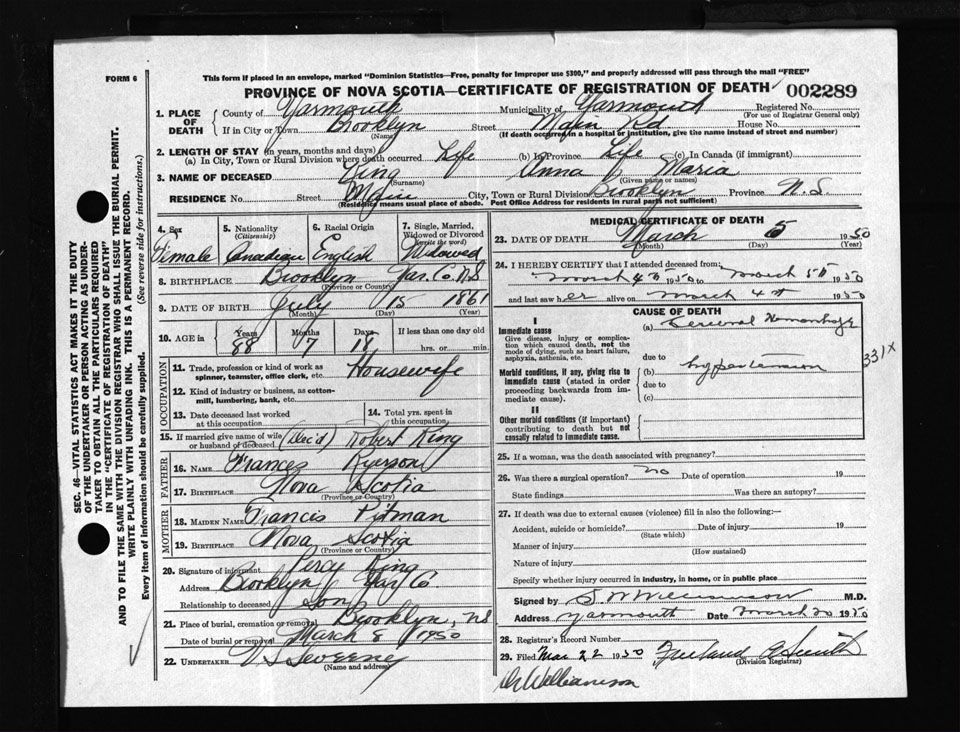 FORM 6
This form if placed in an envelope, marked "Dominion Statistics—Free, penalty for improper use $300," and properly addressed will pass through the mail "FREE"
PROVINCE OF NOVA SCOTIA—CERTIFICATE OF REGISTRATION OF DEATH 002289
1. PLACE OF DEATH County of Yarmouth Municipality of Yarmouth Registered No.
(For use of Registrar General only)
If in City or Town Brooklyn Street Main Rd House No.
(Name) (If death occurred in a hospital or institution, give the name instead of street and number)
2. LENGTH OF STAY (in years, months and days)
(a) In City, Town or Rural Division where death occurred Life (b) In Province Life (c) In Canada (if immigrant)
3. NAME OF DECEASED King Anna Maria
(Surname) (Given name or names)
RESIDENCE No. Street Main City, Town or Rural Division Brooklyn Province N.S.
(Residence means usual place of abode. Post Office Address for residents in rural parts not sufficient)
SEC. 46—VITAL STATISTICS ACT MAKES IT THE DUTY
OF THE UNDERTAKER OR PERSON ACTING AS UNDER-
TAKER TO OBTAIN ALL THE PARTICULARS REQUIRED
IN THE "CERTIFICATE OF REGISTRATION OF DEATH"
AND TO FILE THE SAME WITH THE DIVISION REGISTRAR WHO SHALL ISSUE THE BURIAL PERMIT.
WRITE PLAINLY WITH UNFADING INK. THIS IS A PERMANENT RECORD.
Every item of information should be carefully supplied. (See reverse side for instructions.)
4. Sex 5. Nationality (Citizenship) 6. Racial Origin 7. Single, Married, Widowed or Divorced (write the word)
Female Canadian English Widowed
8. BIRTHPLACE Brooklyn Yar. Co. N.S.
(Province or Country)
9. DATE OF BIRTH July 15 1861
(Month) (Day) (Year)
10. AGE in Years Months Days If less than one day old
88 7 18 hrs. or min.
OCCUPATION
11. Trade, profession or kind of work as spinner, teamster, office clerk, etc. Housewife
12. Kind of industry or business, as cotton-mill, lumbering, bank, etc.
13. Date deceased last worked at this occupation 14. Total yrs. spent in this occupation
15. If married give name of wife or husband of deceased (Dec'd) Robert King
FATHER
16. NAME Frances Ryerson
17. BIRTHPLACE Nova Scotia
(Province or Country)
MOTHER
18. MAIDEN NAME Francis Pitman
19. BIRTHPLACE Nova Scotia
(Province or Country)
20. Signature of informant Percy King
Address Brooklyn Yar Co
Relationship to deceased son
21. Place of burial, cremation or removal Brooklyn, NS
Date of burial or removal March 8 1950
22. UNDERTAKER V S Sweeney
(Name and address)
MEDICAL CERTIFICATE OF DEATH
23. DATE OF DEATH March 5 1950
(Month) (Day) (Year)
24. I HEREBY CERTIFY that I attended deceased from:
March 4th 1950 to March 5th 1950
and last saw her alive on March 4th 1950
CAUSE OF DEATH
I
Immediate cause (a) Cerebral Hemorrhage
Give disease, injury or complication which caused death, not the mode of dying, such as heart failure, asphyxia, asthenia, etc.
due to
Morbid conditions, if any, giving rise to immediate cause (stated in order proceeding backwards from immediate cause). (b) hypertension
due to
(c)
331X
II
Other morbid conditions (if important) contributing to death but not causally related to immediate cause.
25. If a woman, was the death associated with pregnancy?
26. Was there a surgical operation? no Date of operation 19
State findings Was there an autopsy?
27. If death was due to external causes (violence) fill in also the following:—
Accident, suicide or homicide? Date of injury 19
(State which)
Manner of injury
(How sustained)
Nature of injury
Specify whether injury occurred in industry, in home, or in public place
Signed by S W Williamson M.D.
Address Yarmouth Date March 20 1950
28. Registrar's Record Number
29. Filed Mar 22 1950 Freeland A Smith
(Division Registrar)
Dr Williamson